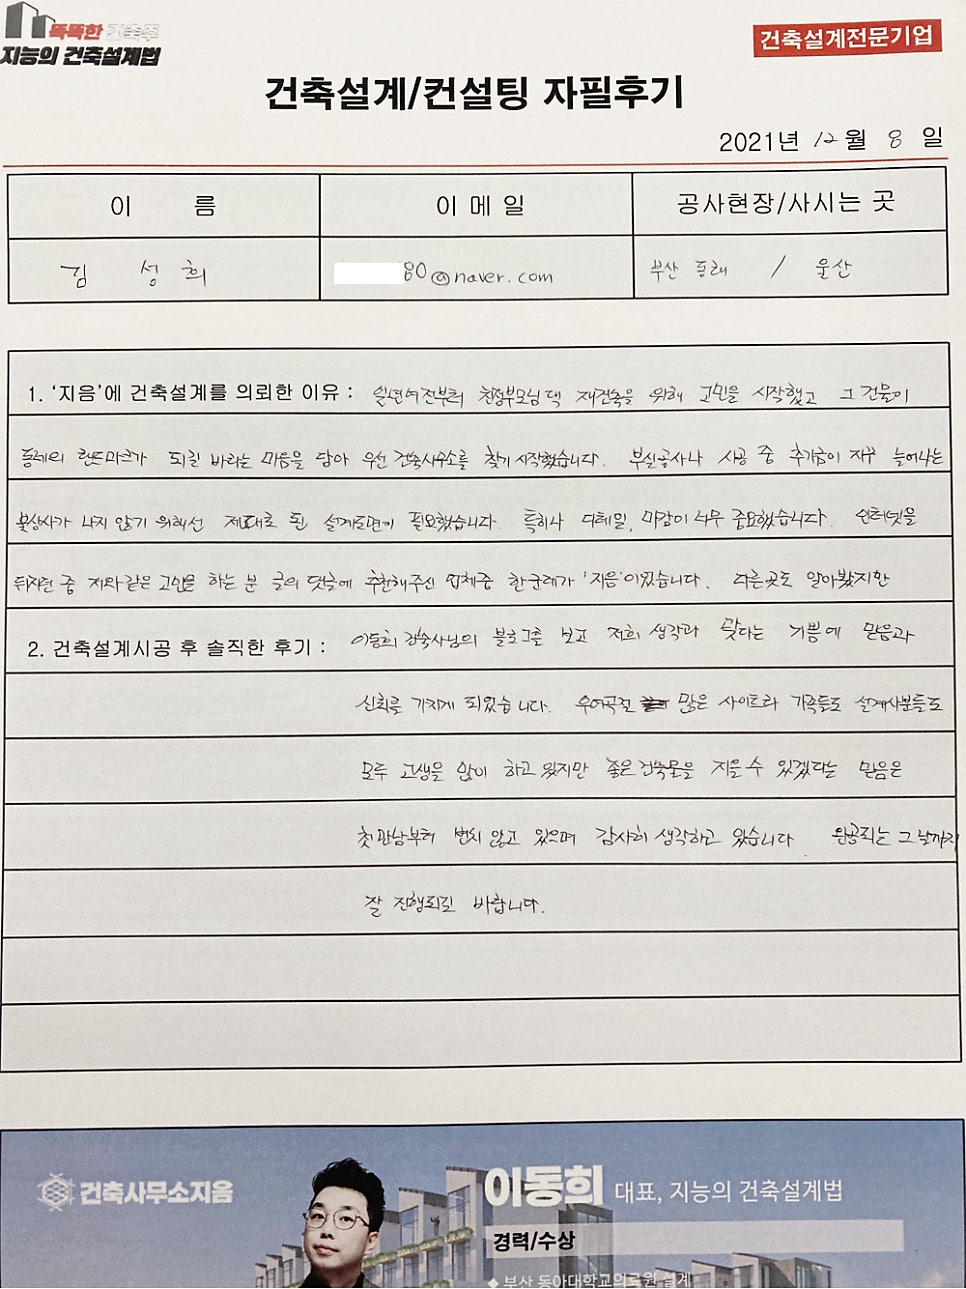 똑똑한 건축주
지능의 건축설계법
건축설계전문기업
건축설계/컨설팅 자필후기
2021년 12월 8일
이 름
이 메 일
공사현장/사시는 곳
김 성 희
80@naver.com
부산 동래 / 울산
1. '지음'에 건축설계를 의뢰한 이유 : 일년여전부터 친정부모님댁 재건축을 위해 고민을 시작했고 그 건물이
동네의 랜드마크가 되길 바라는 마음을 담아 우선 건축사무소를 찾기 시작했습니다. 부실공사나 시공 중 추가금이 자꾸 늘어나는
불상사가 나지 않기 위해선 제대로 된 설계도면이 필요했습니다. 특히나 디테일, 마감이 너무 중요했습니다. 인터넷을
뒤지던 중 저와같은 고민을 하는 분 글의 댓글에 추천해주신 업체중 한군데가 '지음'이었습니다. 다른곳도 알아봤지만
2. 건축설계시공 후 솔직한 후기 : 이동희 건축사님의 블로그를 보고 저희 생각과 맞다는 기쁨에 믿음과
신뢰를 가지게 되었습니다. 우여곡절 많은 사이트라 가족들도 설계사분들도
모두 고생을 많이 하고 있지만 좋은 건축물을 지을 수 있겠다는 믿음은
첫만남부터 변치 않고 있으며 감사히 생각하고 있습니다 완공되는 그 날까지
잘 진행되길 바랍니다.
건축사무소지음
이동희 대표, 지능의 건축설계법
경력/수상
◆ 부산 동아대학교의료원 설계